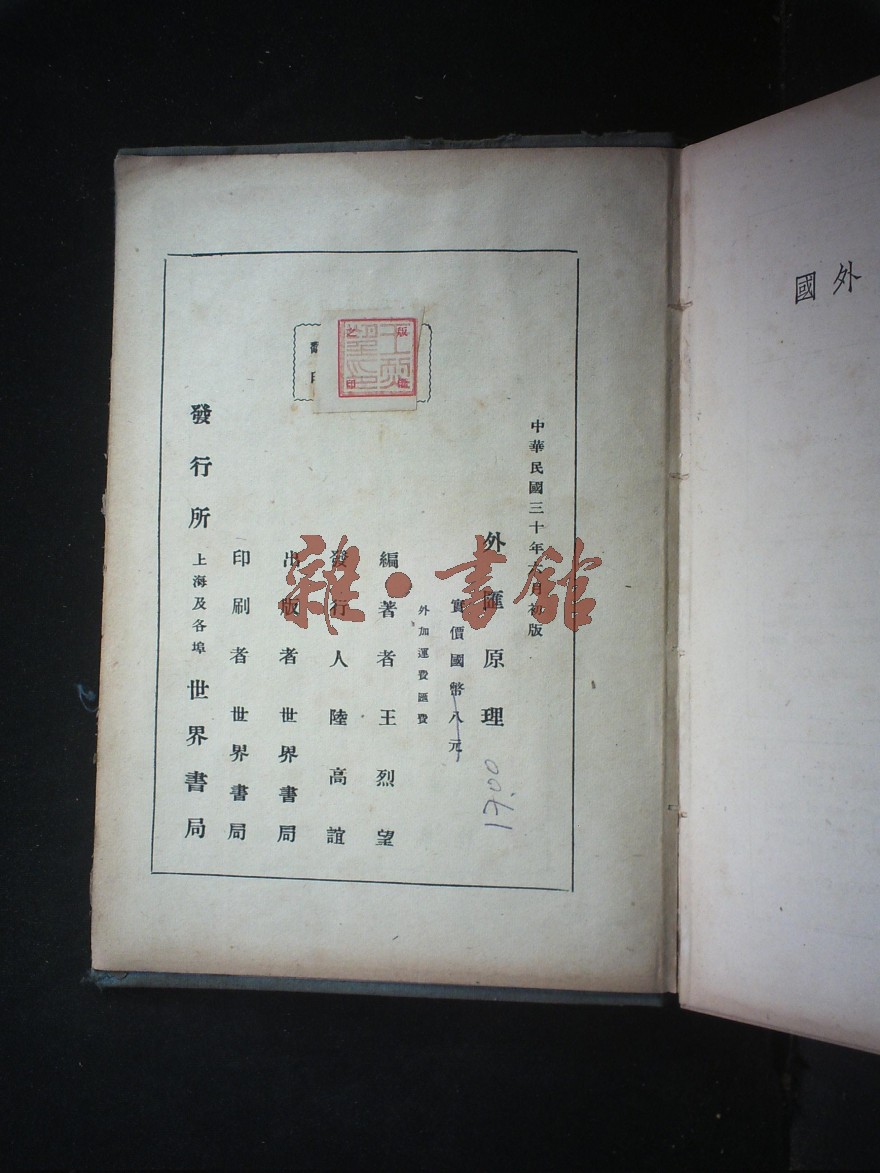 中華民國三十年六月初版
外匯原理
實價國幣八元
17.00
外加運費匯費
編著者王烈望
發行人陸高誼
出版者世界書局
印刷者世界書局
發行所上海及各埠世界書局
雜·書館
外國